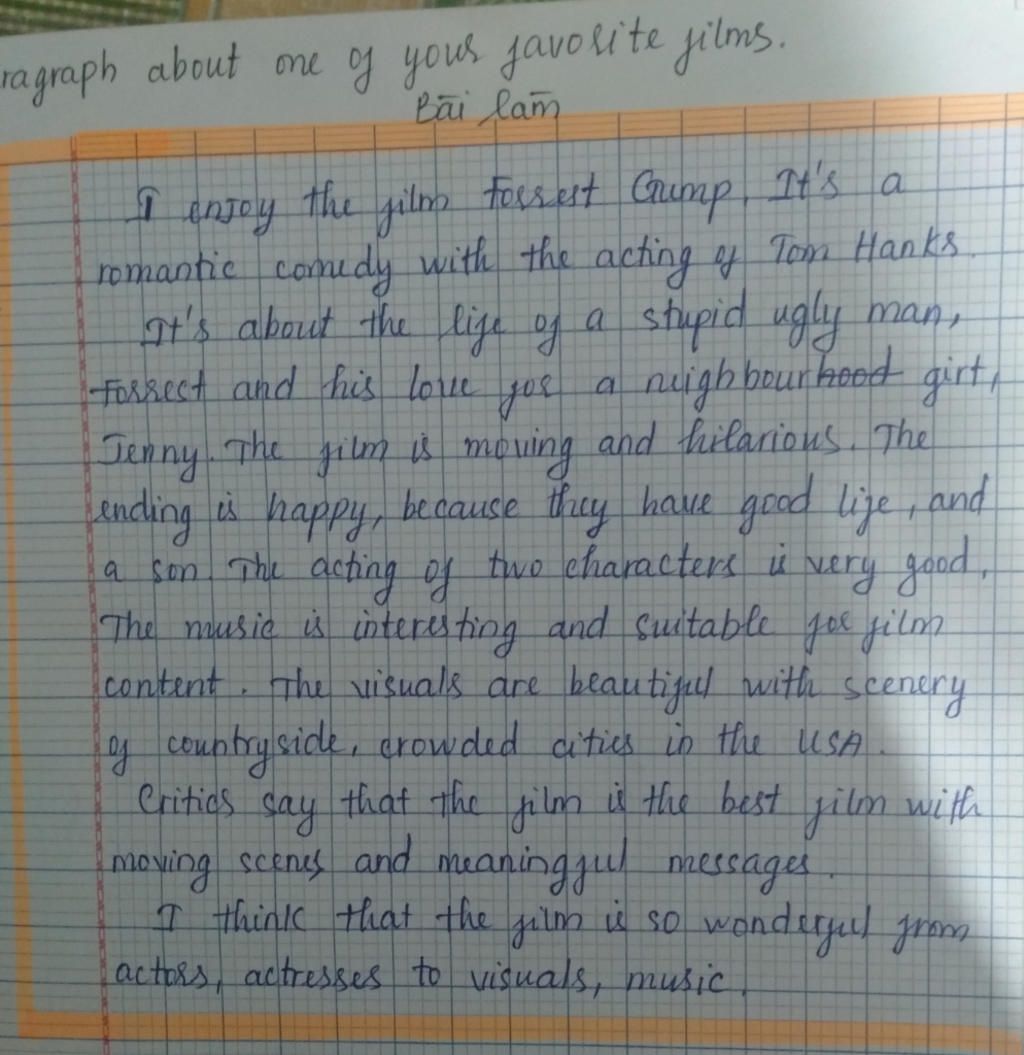 ragraph about one of your favorite films.
Bài làm
I enjoy the film Forrest Gump. It's a
romantic comedy with the acting of Tom Hanks.
It's about the life of a stupid ugly man,
Forrest and his love for a neighbourhood girl,
Jenny. The film is moving and hilarious. The
ending is happy, because they have good life, and
a son. The acting of two characters is very good.
The music is interesting and suitable for film
content. The visuals are beautiful with scenery
of countryside, crowded cities in the USA.
Critics say that the film is the best film with
moving scenes and meaningful messages.
I think that the film is so wonderful from
actors, actresses to visuals, music.